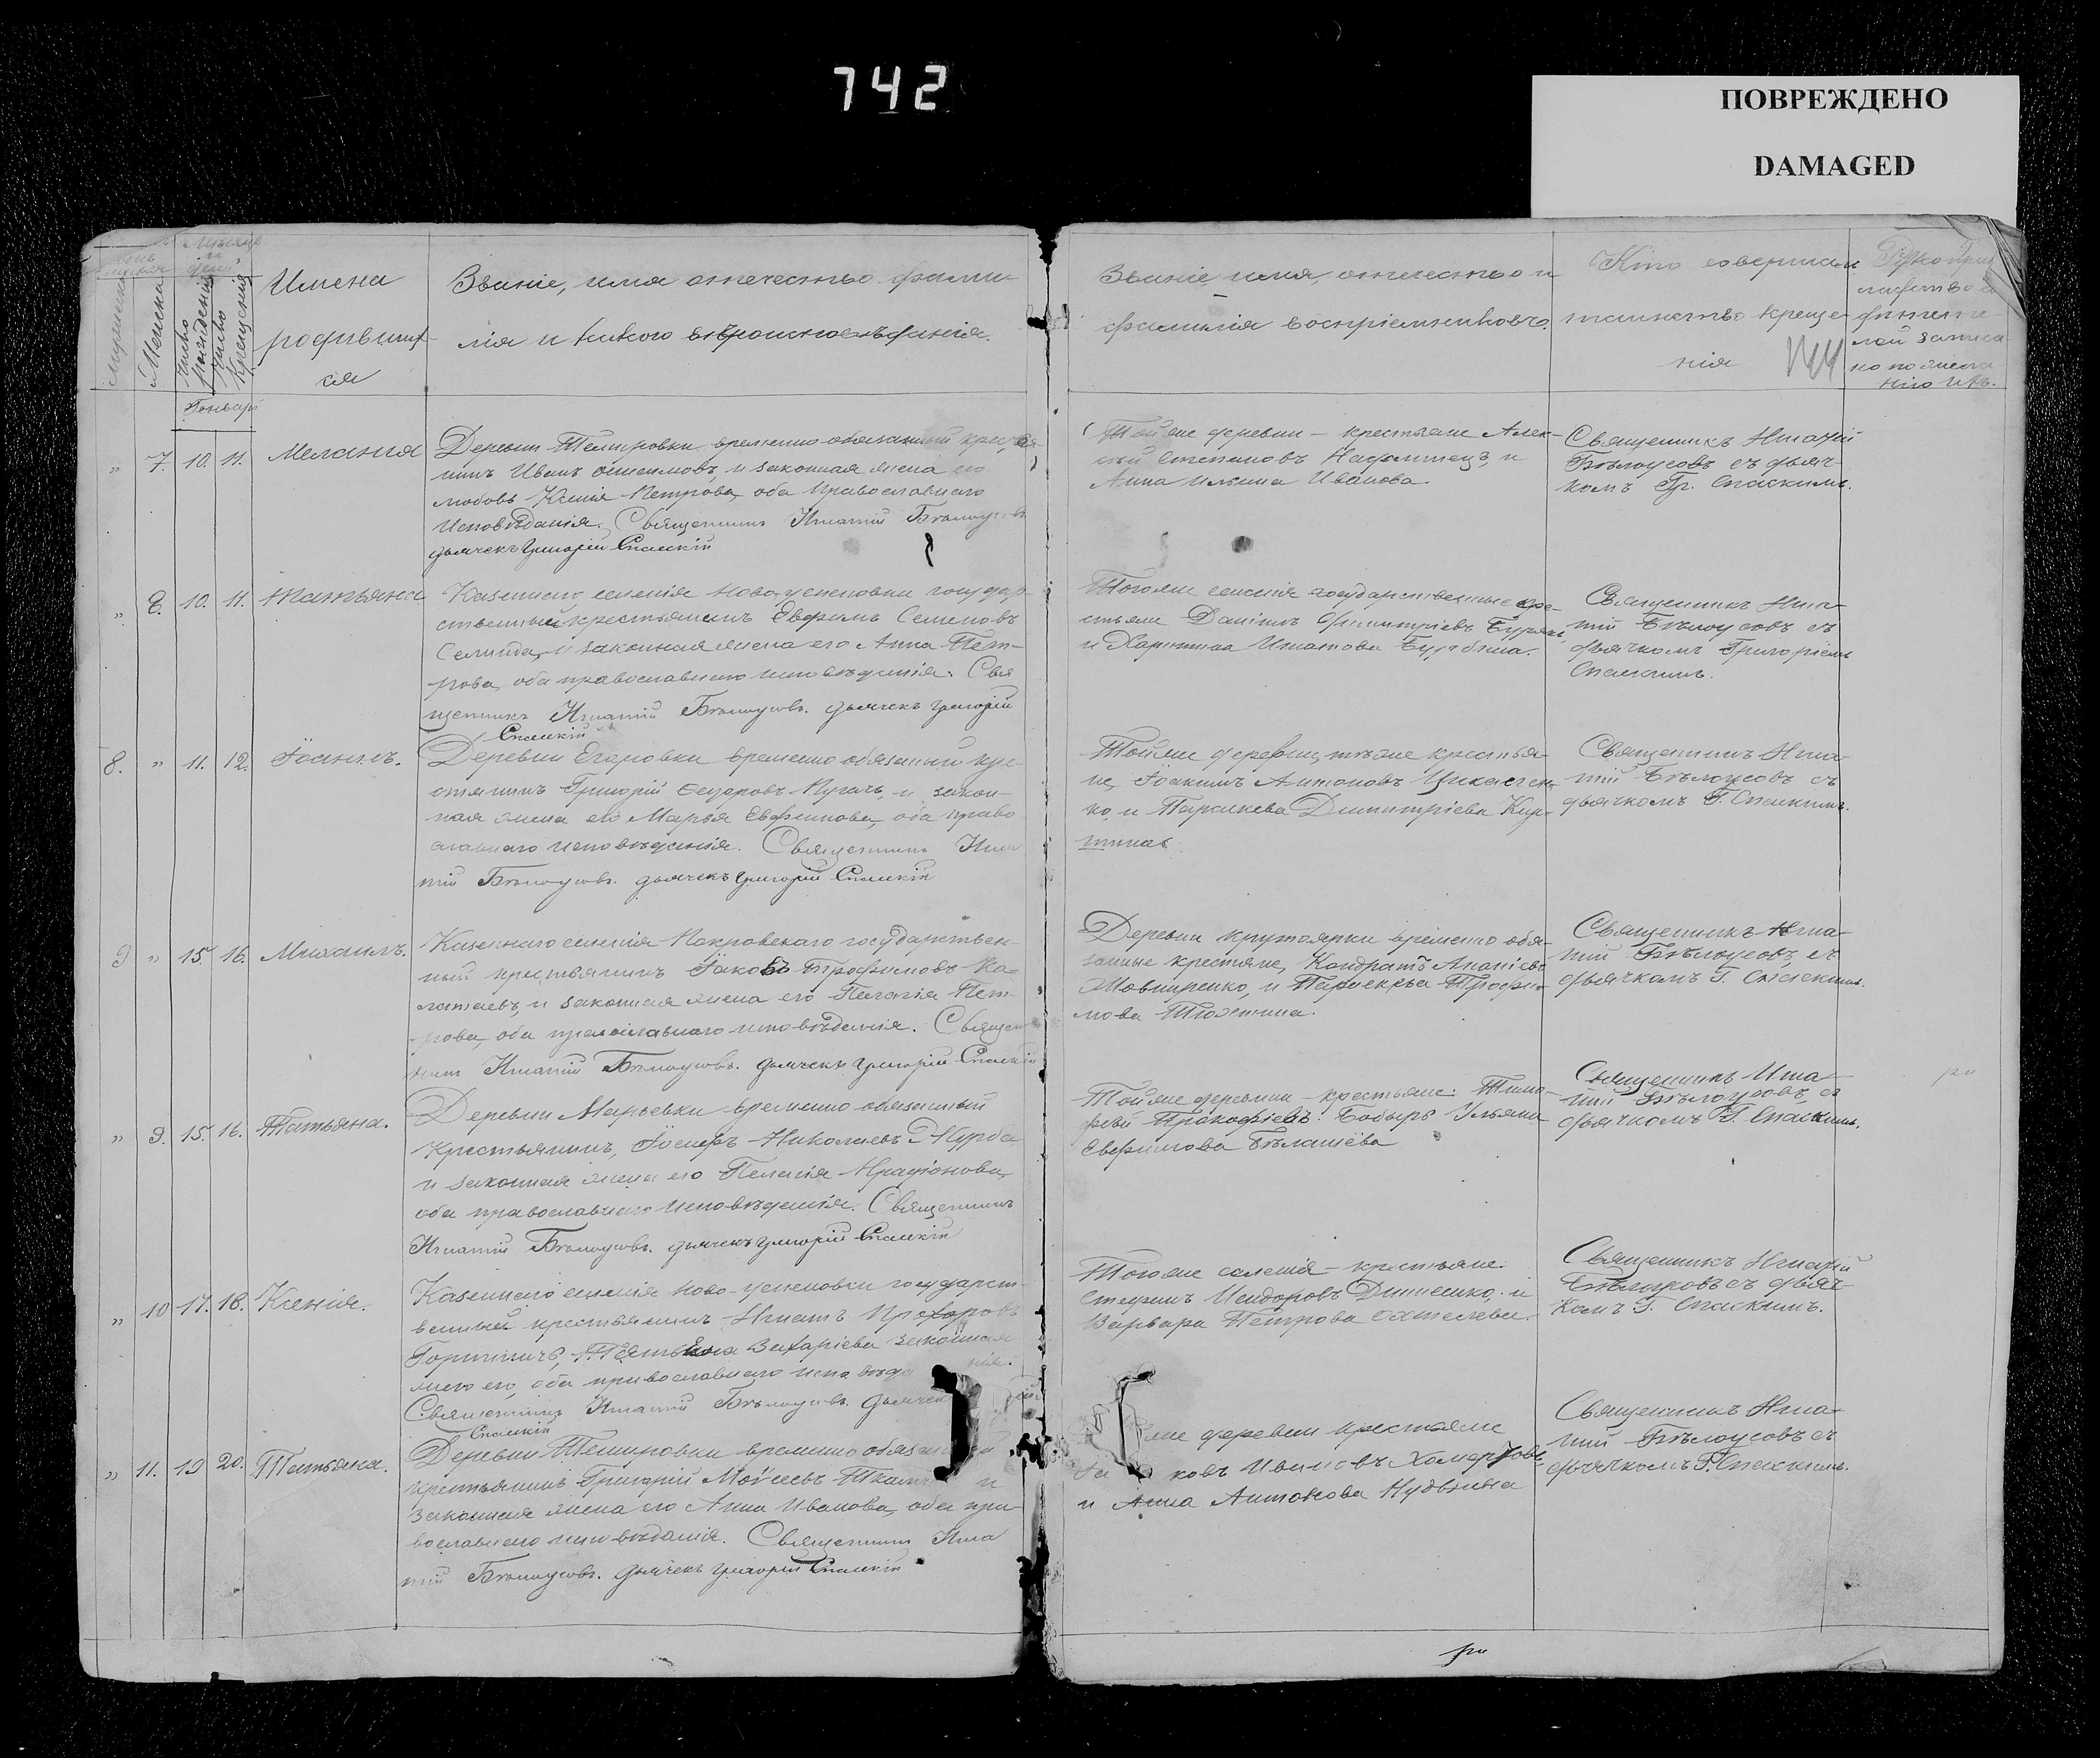 742
ПОВРЕЖДЕНО
DAMAGED
Имена
родивших-
ся
Званіе, имя отечество фами-
лія и какого вѣроисповѣданія.
Званіе, имя, отечество и
фамилія воспріемниковъ.
Кто совершал
таинство креще-
нія
Мужеска
Женска
Число
рожденія
Число
Крещенія
Генварь
" 7. 10. 11. Меланія
Деревни Темировки временно обязанный крестья
нинъ Иванъ и законная жена его
любовь Ксенія Петрова, оба православнаго
Исповѣданія. Священникъ Игнатій Бѣлоусовъ
дьячекъ Григорій Спасскій
Той же деревни - крестьяне Алек-
сѣй Степановъ и
Анна Ильина Иванова.
Священникъ Игнатій
Бѣлоусовъ съ дьяч-
комъ Гр. Спаскимъ.
" 8. 10. 11. Татьяна
Казеннаго селенія Ново-успеновки государ-
ственный крестьянинъ Евфимъ Семеновъ
и законная жена его Анна Пет-
рова, оба православнаго исповѣданія. Свя
щенникъ Игнатій Бѣлоусовъ. дьячекъ Григорій
Спасскій
Тогоже селенія государственные кре-
стьяне Даніилъ Димитріевъ Бурякъ,
и Игнатова
Священникъ Игна-
тій Бѣлоусовъ съ
дьячкомъ Григоріемъ
Спаскимъ.
8. " 11. 12. Іоаннъ.
Деревни Егоровки временно обязанный кре-
стянинъ Григорій Ѳедоровъ Пугачь, и закон-
ная жена его Марья Евфимова, оба право
славнаго исповѣданія. Священникъ Игна
тій Бѣлоусовъ. дьячекъ Григорій Спасскій
Той же деревни, тѣ же крестья-
не, Іоакимъ Антоновъ
ко и Параскева Димитріева
Священникъ Игна-
тій Бѣлоусовъ съ
дьячкомъ Г. Спаскимъ.
9 " 15. 16. Михаилъ.
Казеннаго селенія Покровскаго государствен-
ный крестьянинъ Іаковъ Трофимовъ Ка-
латаевъ, и законная жена его Пелагія Пет-
рова, оба православнаго исповѣданія. Священ
никъ Игнатій Бѣлоусовъ. дьячекъ Григорій Спасскій
Деревни крутоярки временно обя-
занные крестяне, Кондратъ Ананіевъ
и Параскева Трофи-
мова
Священникъ Игна-
тій Бѣлоусовъ, съ
дьячкомъ Г. Спаскимъ.
" 9. 15. 16. Татьяна.
Деревни Марьевки временно обязанный
Крестьянинъ, Іосифъ Николаевъ Журба
и законная жена его Пелагія
оба православнаго исповѣданія. Священникъ
Игнатій Бѣлоусовъ. дьячекъ Григорій Спасскій
Той же деревни - крестьяне: Тимо-
фей Прокофіевъ Бобырь Ульяна
Евфимова
Священникъ Игна-
тій Бѣлоусовъ, съ
дьячкомъ Г. Спаскимъ.
" 10 17. 18. Ксенія.
Казеннаго селенія Ново-успеновки государст-
венный крестьянинъ Игнатъ Прохоровъ
Татьяна Захаріева законная
жена его, оба православнаго
Священникъ Игнатій Бѣлоусовъ. дьячекъ
Спасскій
Того же селенія - крестьяне:
Стефанъ Исидоровъ и
Варвара Петрова
Священникъ Игнатій
Бѣлоусовъ съ дьяч-
комъ Г. Спаскимъ.
" 11. 19 20. Татьяна.
Деревни Темировки временно
крестьянинъ Григорій Моѵсеевъ и
законная жена его Анна Иванова, оба пра-
вославнаго исповѣданія. Священникъ Игна
тій Бѣлоусовъ. дьячекъ Григорій Спасскій
же деревни крестьяне
Ивановъ
и Анна Антонова
Священникъ Игна-
тій Бѣлоусовъ съ
дьячкомъ Г. Спаскимъ.